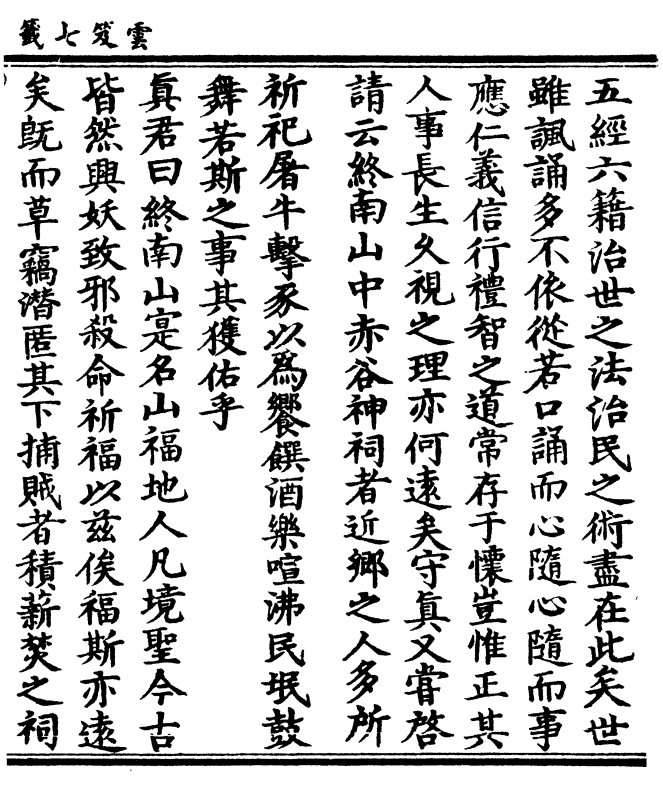 雲笈七籤
五經六籍治世之法治民之術盡在此矣世
雖諷誦多不依從若口誦而心隨心隨而事
應仁義信行禮智之道常存于懷豈惟正其
人事長生久視之理亦何遠矣守眞又嘗啓
請云終南山中赤谷神祠者近鄉之人多所
祈祀屠牛擊豕以爲饗饌酒樂喧沸民氓鼓
舞若斯之事其獲佑乎
眞君曰終南山寔名山福地人凡境聖今古
皆然興妖致邪殺命祈福以茲俟福斯亦遠
矣旣而草竊潛匿其下捕賊者積薪焚之祠